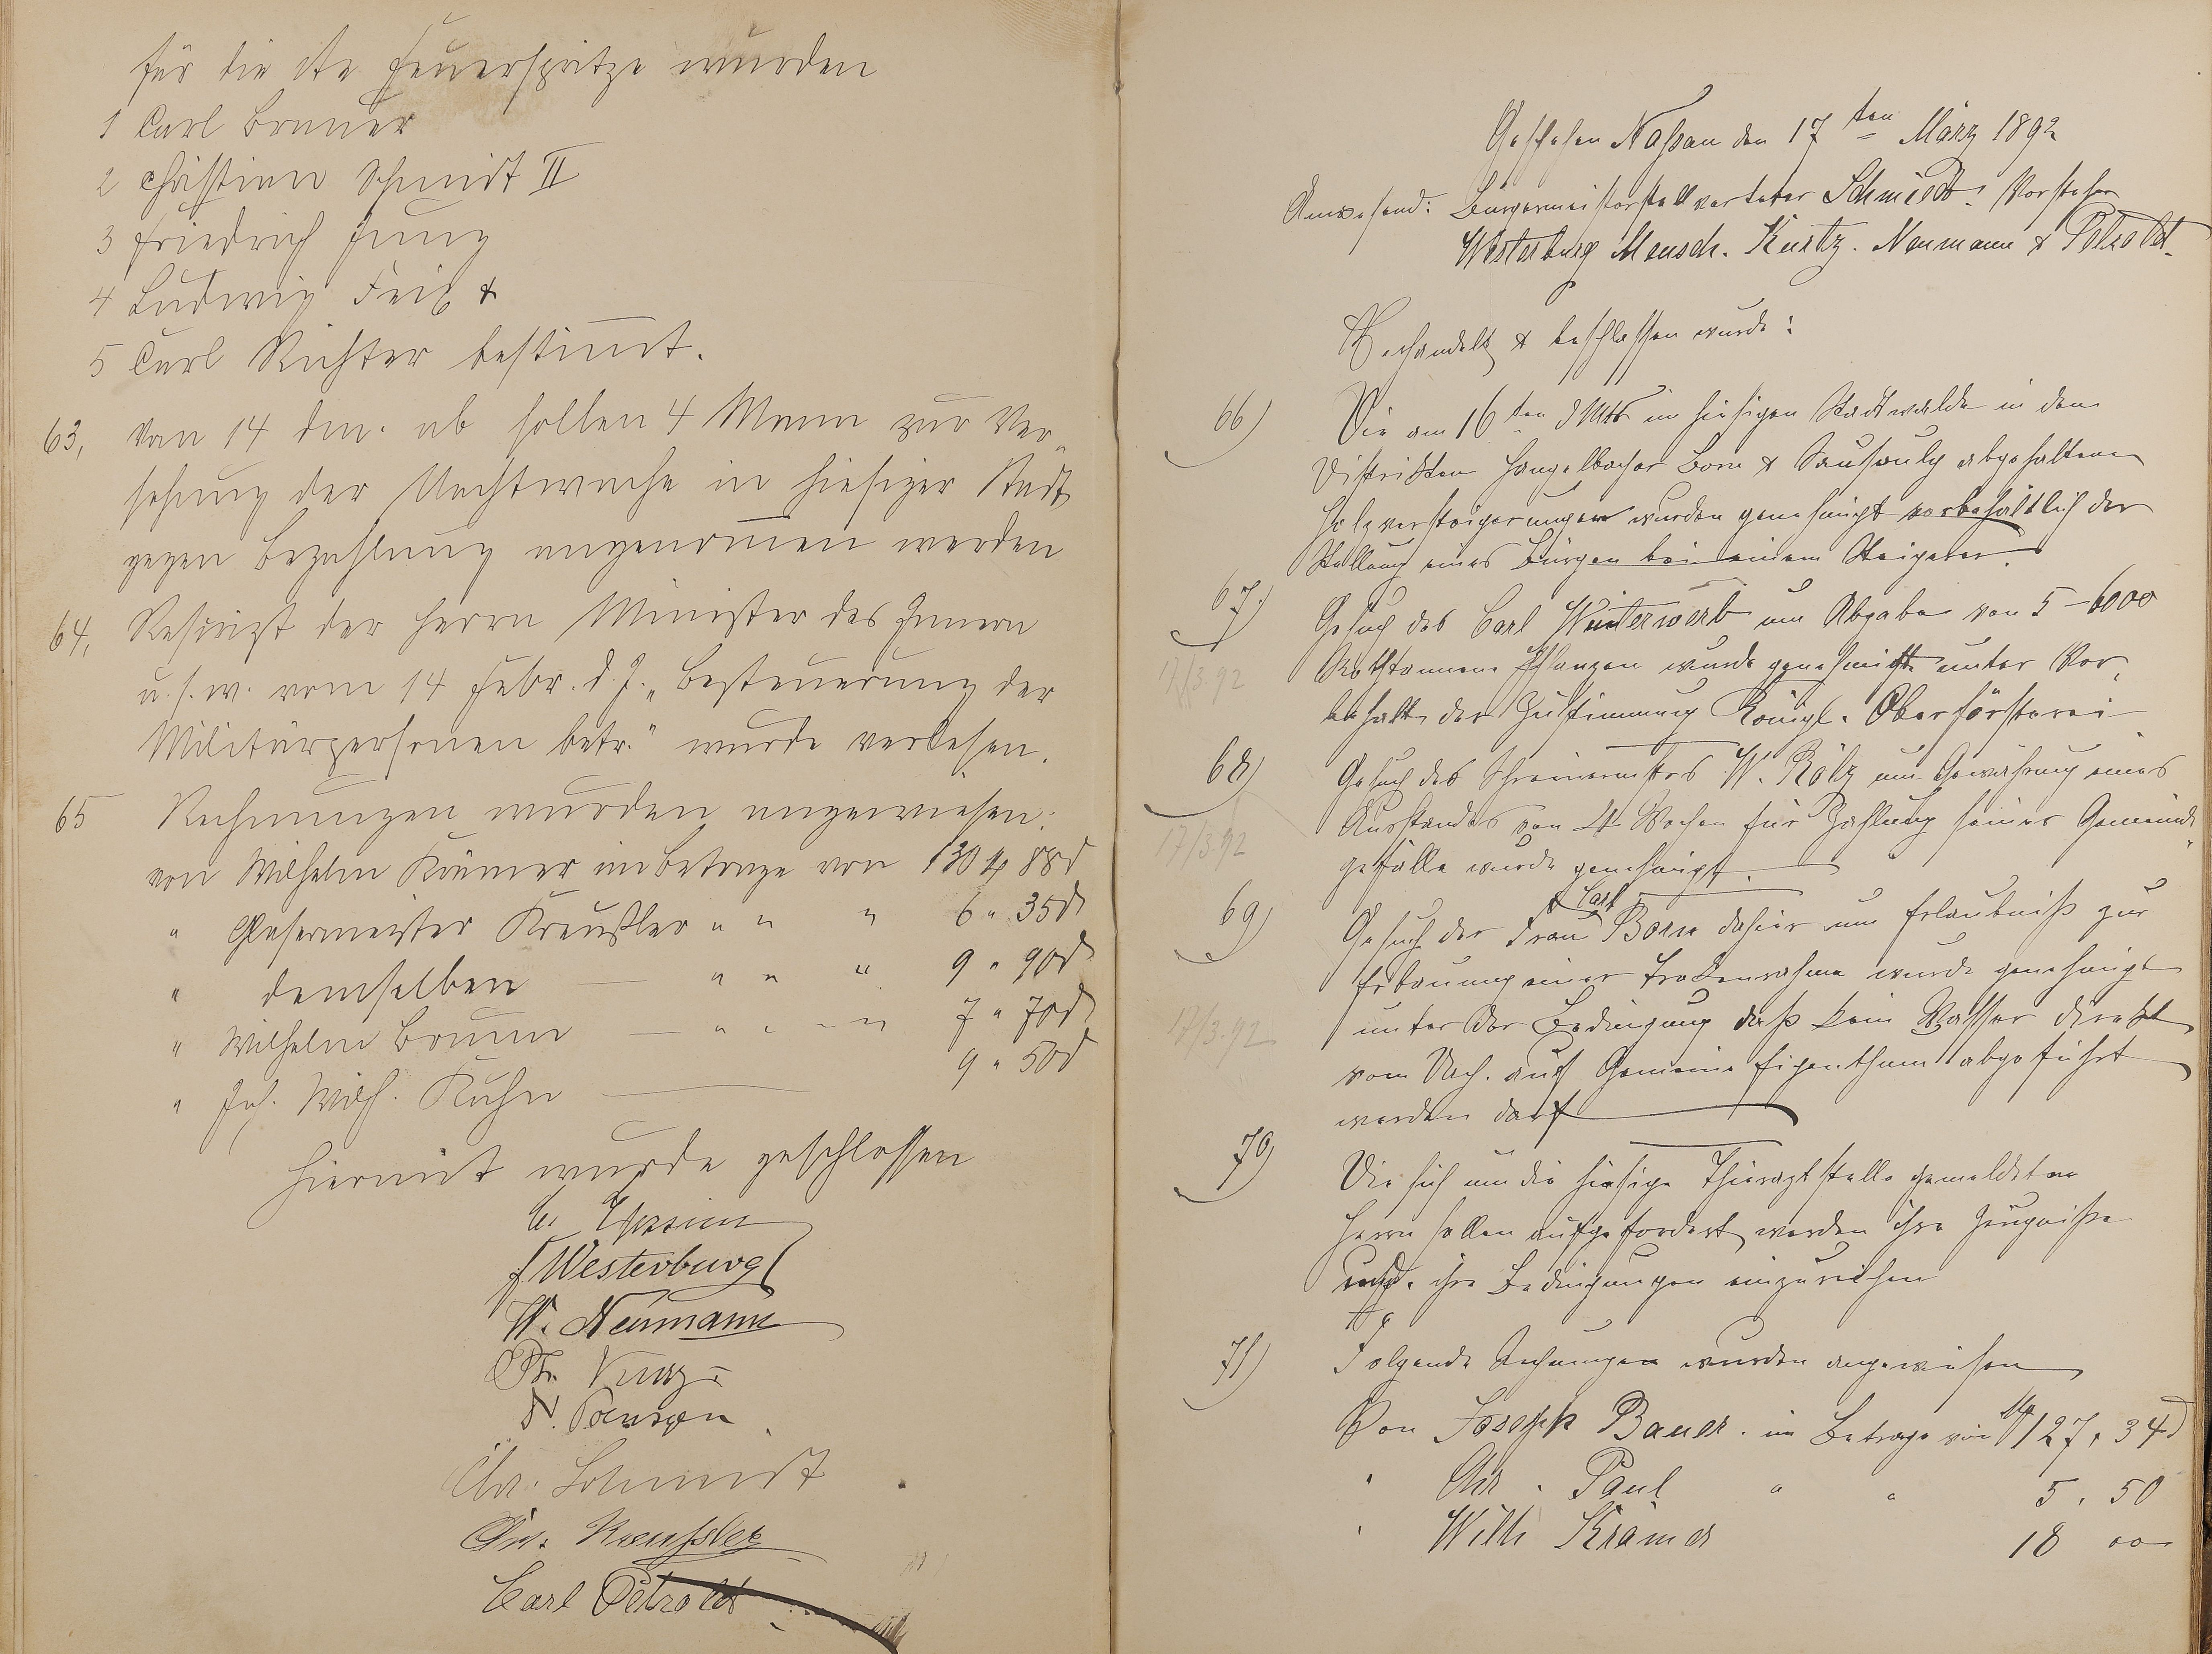 für die 1te Feuerspritze wurden
1 Carl Bruner
2 Christian Schmidt II
3 Friedrich Jung
4 Ludwig Feix &
5 Carl Richter bestimt.
63, Von 14 dm. ab sollen 4 Mann zur Ver-
sehung der Nachtwache in hiesiger Stadt
gegen Bezahlung angenomen werden
64, Rescript der Herrn Minister des Innern
u.s.w. vom 14 Febr. d. J. „Besteuerung der
Militärpersonen betr." wurde verlesen.
65 Rechnungen wurden angewiesen:
von Wilhelm Krämer im Betrage von 130 M 88 d
" Glasermeister Kreußler " " " 6 " 35 d
" demselben — " " " 9 " 90 d
" Wilhelm Bruun — " " " 7 " 70 d
" Joh. Wilh. Kuhn — 9 " 50 d
Hiermit wurde geschlossen
F Westerburg
W. Neumann
Chr. Schmidt
Chr. Kreußler
Carl Petzoldt
Geschehen Naßau den 17ten März 1892
Anwesend: Bürgermeisterstellvertreter Schmidt. Vorsteher
Westerburg Mensch. Kurtz. Neumann & Petzoldt.
Verhandelt & beschlossen wurde:
66) Die am 16ten d Mts im hiesigen Stadtwalde in den
Distrikten Hangelbacher Born & abgehaltenen
Holzversteigerungen wurden genehmigt vorbehältlich der
Stellung eines Bürgen bei einem Steigerer.
67.) Gesuch des Carl Winterwerb um Abgabe von 5-6000
17/3.92
Rothtannen Pflanzen wurde genehmigt unter Vor-
behalt der Zustimmung Königl. Oberförsterei
68) Gesuch des Schreinermstrs W. Rölz um Gewährung eines
17/3.92
Ausstandes von 4 Wochen für Zahlung seiner Gemeinde-
gefälle wurde genehmigt.
69) Gesuch der Frau Carl Born dahier um Erlaubniß zur
Erbauung einer Trockenrahme wurde genehmigt
17/3.92
unter der Bedingung daß kein Wasser direkt
vom Dach auf Gemeine Eigenthum abgeführt
werden darf
70) Die sich um die hiesige Thierarztstelle gemeldeten
Herrn sollen aufgefordert werden ihre Zeugniße
resp. ihre Bedingungen einzureichen
71) Folgende Rechnungen wurden angewiesen
Von Joseph Bauer. im Betrage von M 127, 34 d
" Chr. Paul " " 5, 50
" Wilh Krämer 18 00